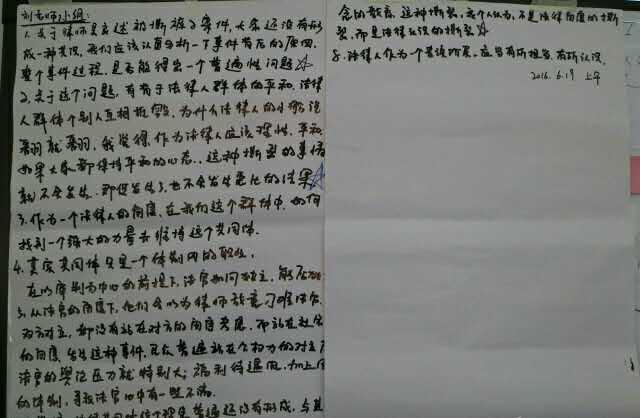 刘老师小组:
1. 关于律师吴良述被撕裤子案件,大家还没有形
成一种共识,我们应该认真分析一下事件背后的原因,
整个事件过程,是否能得出一个普遍性问题
2. 关于这个问题,有关于法律人群体的平和,法律
人群体个别人互相抵毁,为什么法律人的小船说
翻就翻,我觉得,作为法律人应该理性,平和
如果大家都保持平和的心态,这种撕裂的事情
就不会发生,即使发生了,也不会发生恶化的结果
3. 作为一个法律人的角度,在我们这个群体中,如何
找到一个强大的力量去维持这个共同体.
4. 其实共同体只是一个体制内的职业,
在以审判为中心的前提下,法官如何独立,
5. 从法官的角度下,他们会以为律师故意刁难法官,
双方对立,却没有站在对方的角度考虑,而站在社会
的角度,发生这种事件,民众普遍站在公权力的对立
法官的舆论压力就特别大;福利待遇低,加上
的体制,导致法官心中有一些不满.
普遍还没有形成,与其
念的教育,这种撕裂,我个人认为,不是法律角度的撕
裂,而是法律认识的撕裂
8. 法律人作为一个普通阶层,应当有所担当,有所认识,
2016. 6. 19 上午